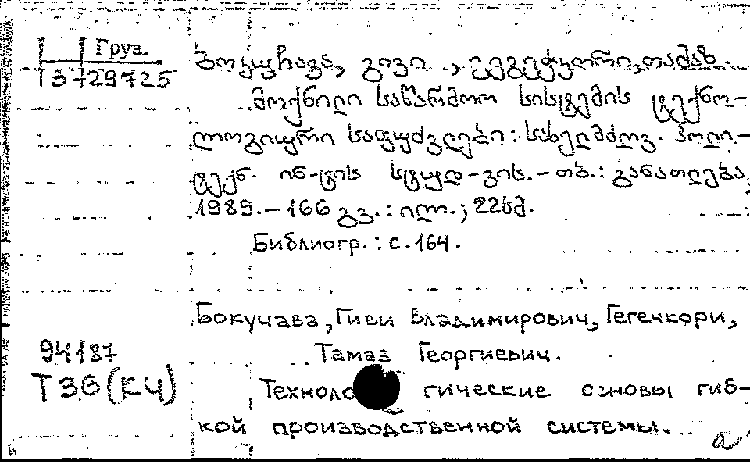 Груз.
3729725
ბოკუჩავა, გივი ., გეგეჭკორი, თამაზ.
მოქნილი საწარმოო სისტემის ტექნო-
ლოგიური საფუძვლები : სახელმძღვ. პოლი-
ტექნ. ინ-ტის სტუდ-ვის. – თბ. : განათლება,
1989. – 166 გვ. : ილ. ; 22სმ.
Библиогр. : с. 164.
Бокучава, Гиви Владимирович, Гегечкори,
94187
Тамаз Георгиевич.
Т36(КЧ)
Технологические основы гиб-
кой производственной системы.
а